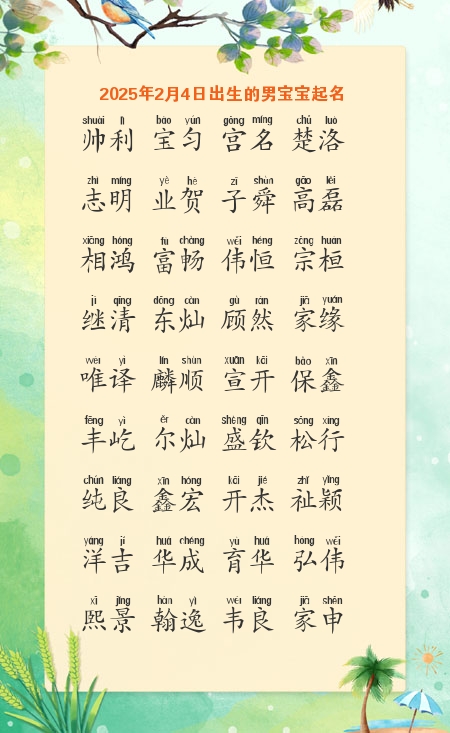 2025年2月4日出生的男宝宝起名
shuài lì bǎo yún gōng míng chǔ luò
帅利 宝匀 宫名 楚洛
zhì míng yè hè zǐ shùn gāo lěi
志明 业贺 子舜 高磊
xiāng hóng fù chàng wěi héng zōng huán
相鸿 富畅 伟恒 宗桓
jì qīng dōng càn gù rán jiā yuán
继清 东灿 顾然 家缘
wéi yì lín shùn xuān kāi bǎo xīn
唯译 麟顺 宣开 保鑫
fēng yì ěr càn shèng qīn sōng xíng
丰屹 尔灿 盛钦 松行
chún liáng xīn hóng kāi jié zhǐ yǐng
纯良 鑫宏 开杰 祉颖
yáng jí huá chéng yù huá hóng wěi
洋吉 华成 育华 弘伟
xī jǐng hàn yì wéi liáng jiā shēn
熙景 翰逸 韦良 家申